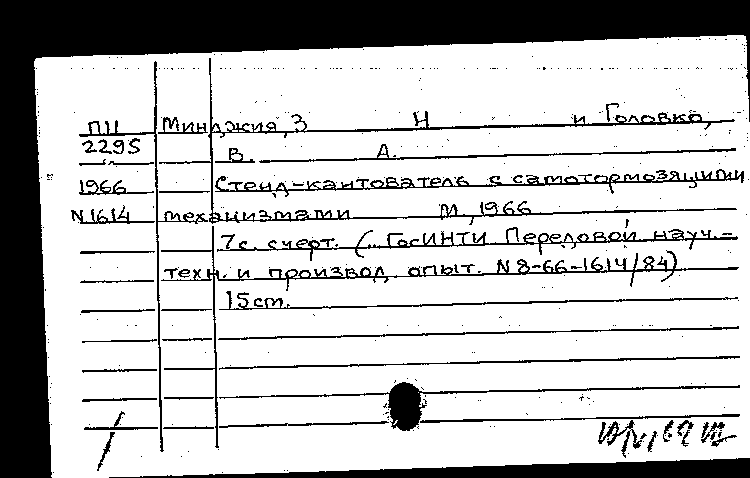 П11 Минджия, З Н и Головко,
2295 В. А.
1966 Стенд-кантователь с самотормозящими
N1614 механизмами М, 1966
7с. с черт. (ГосИНТИ Передовой науч.-
техн. и производ. опыт. N 8-66-1614/84)
15 cm.